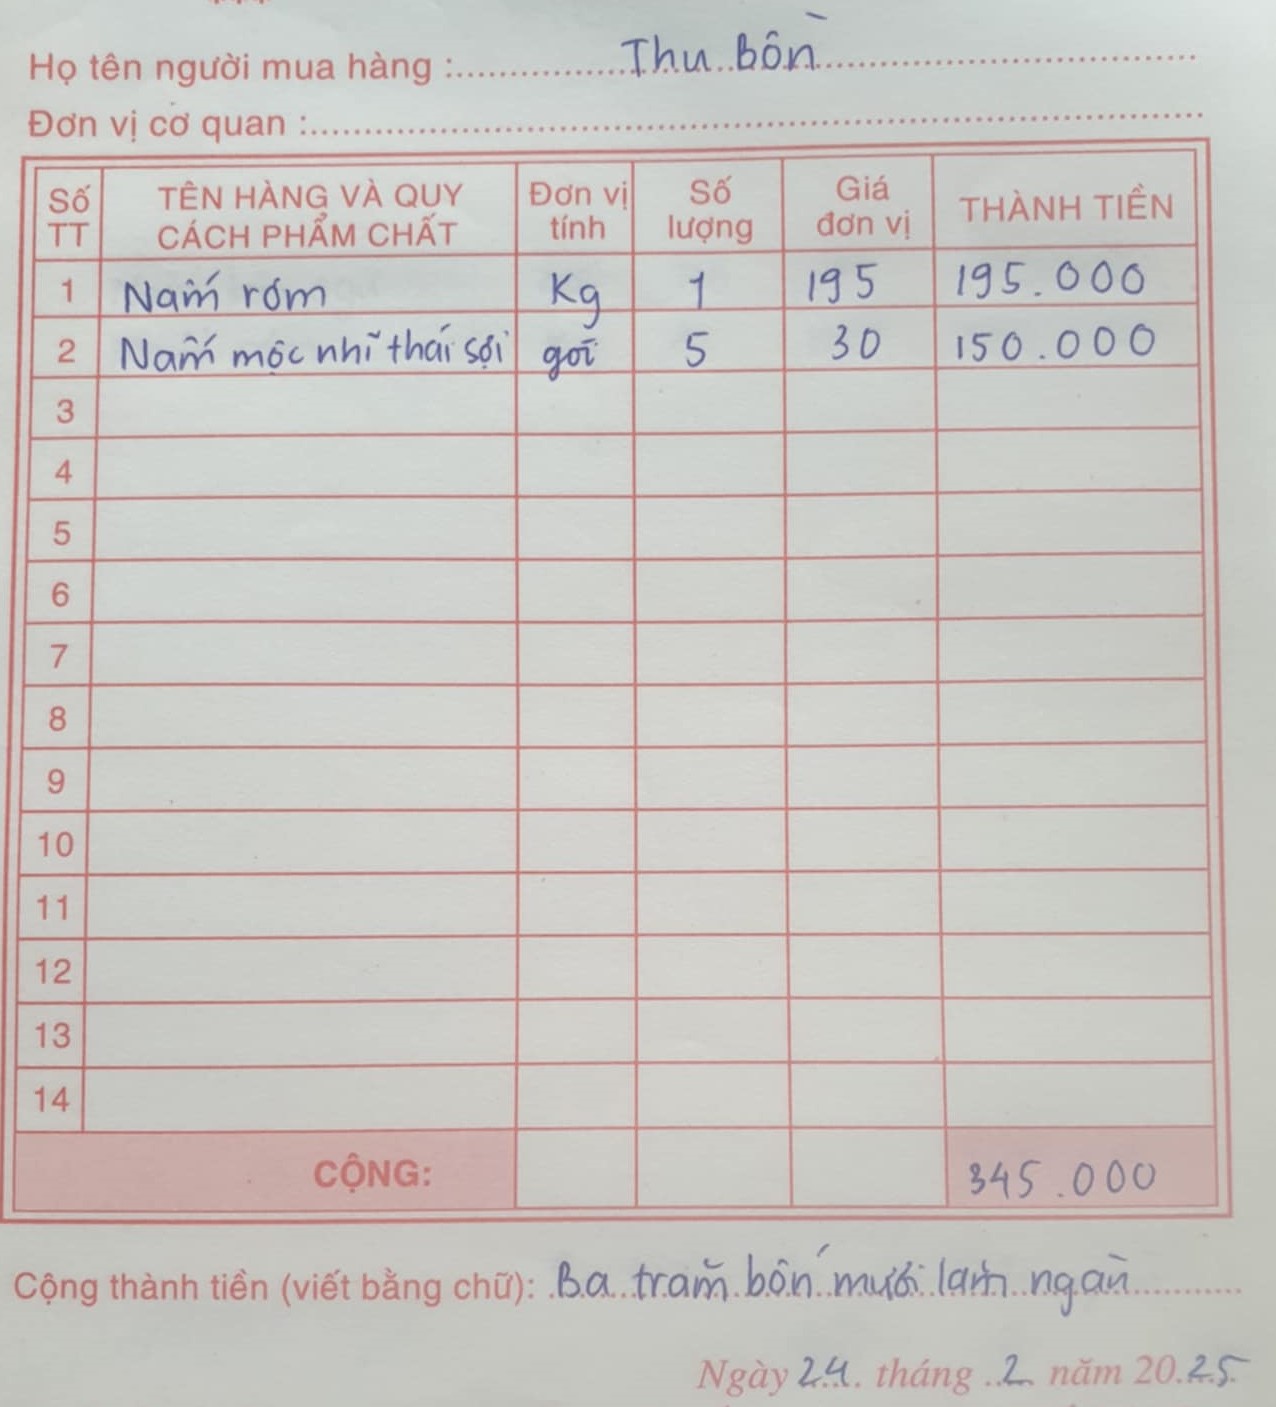 Họ tên người mua hàng : Thu Bồn
Đơn vị cơ quan :
Số TT TÊN HÀNG VÀ QUY CÁCH PHẨM CHẤT Đơn vị tính Số lượng Giá đơn vị THÀNH TIỀN
1 Nấm rơm Kg 1 195 195.000
2 Nấm mộc nhĩ thái sợi gói 5 30 150.000
3
4
5
6
7
8
9
10
11
12
13
14
CỘNG: 345.000
Cộng thành tiền (viết bằng chữ): Ba trăm bốn mươi lăm ngàn
Ngày 24 tháng 2 năm 2025